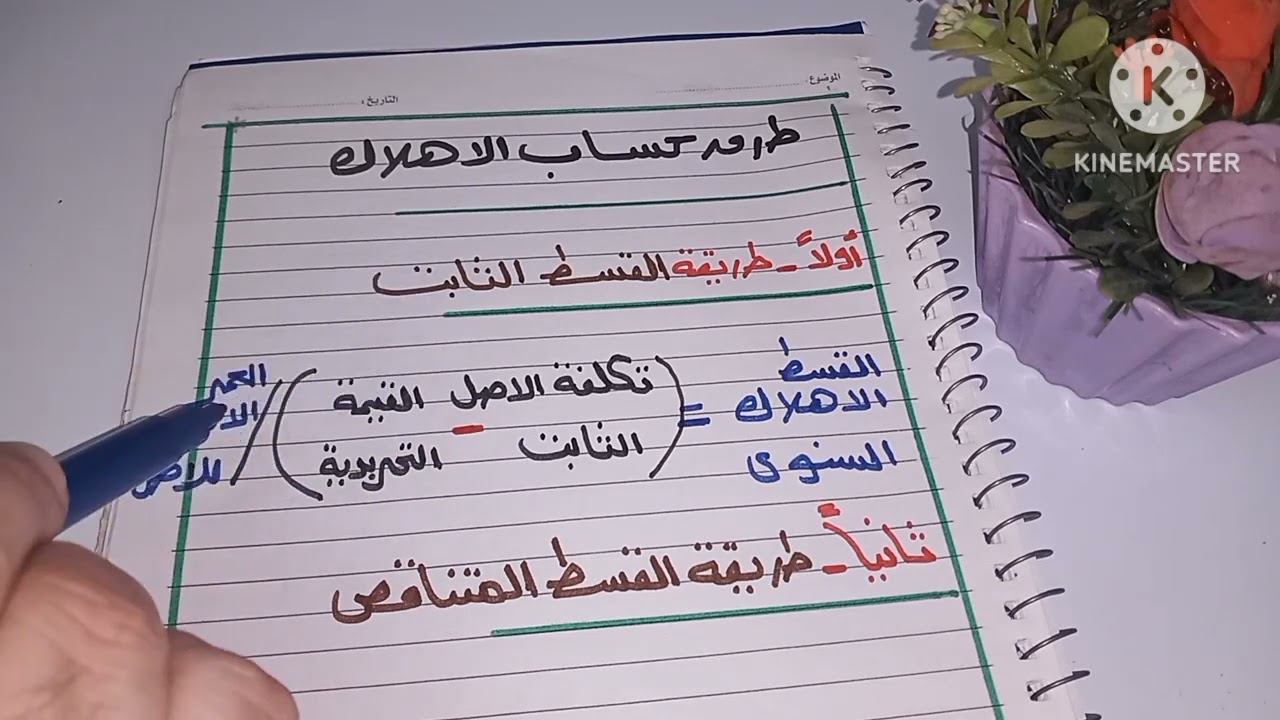 الموضوع:
التاريخ:
KINEMASTER
طرق حساب الاهلاك
أولاً - طريقة القسط الثابت
القسط الاهلاك السنوى = (تكلفة الاصل الثابت - القيمة التخريدية) / العمر للأصل
ثانياً - طريقة القسط المتناقص